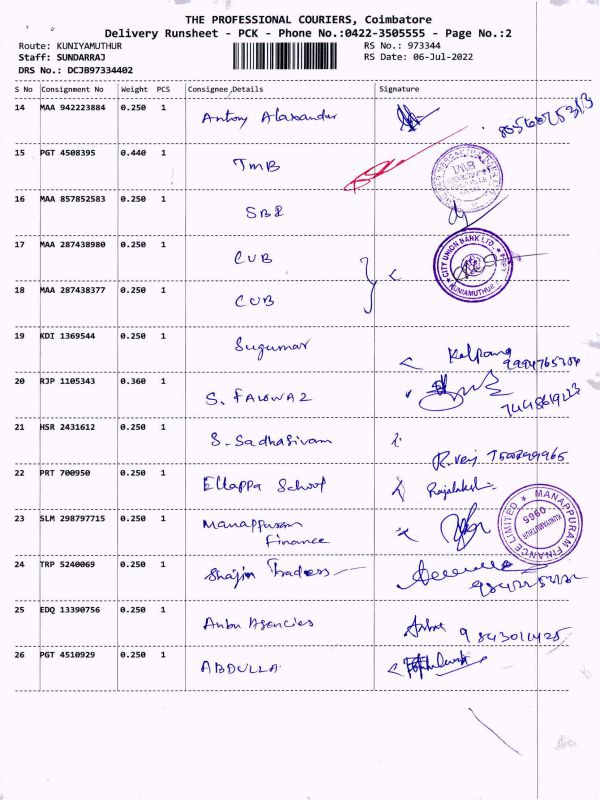 THE PROFESSIONAL COURIERS, Coimbatore
Delivery Runsheet - PCK - Phone No.:0422-3505555 - Page No.:2
Route: KUNIYAMUTHUR RS No.: 973344
Staff: SUNDARRAJ RS Date: 06-Jul-2022
DRS No.: DCJB97334402
S No Consignment No Weight PCS Consignee Details Signature
14 MAA 942223884 0.250 1 Antony Alaxandar
15 PGT 4508395 0.440 1 TMB
TMB
16 MAA 857852583 0.250 1 SBI
17 MAA 287438980 0.250 1 CUB
CITY UNION BANK LTD. KUNIAMUTHUR
18 MAA 287438377 0.250 1 CUB
19 KDI 1369544 0.250 1 Sugumar Kalpana
20 RJP 1105343 0.360 1 S. FAIOWAZ
21 HSR 2431612 0.250 1 S. Sadhasivam
22 PRT 700950 0.250 1 Ellappa School
23 SLM 298797715 0.250 1 Manappuram
Finance
MANAPPURAM FINANCE LIMITED 0965 KUNIYAMUTHUR
24 TRP 5240069 0.250 1 Shajin Traders
25 EDQ 13390756 0.250 1 Anbu Agencies
26 PGT 4510929 0.250 1 ABDULLA